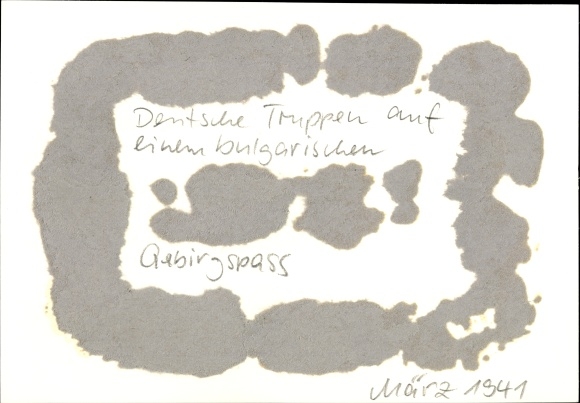 Deutsche Truppen auf
einem bulgarischen
Gebirgspass
März 1941